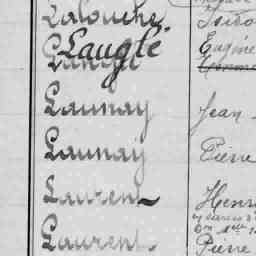 Lalouche Isido
Lauglé Eugène
Launay Jean
Launay Pierre
Laurent Henri
Laurent Pierre